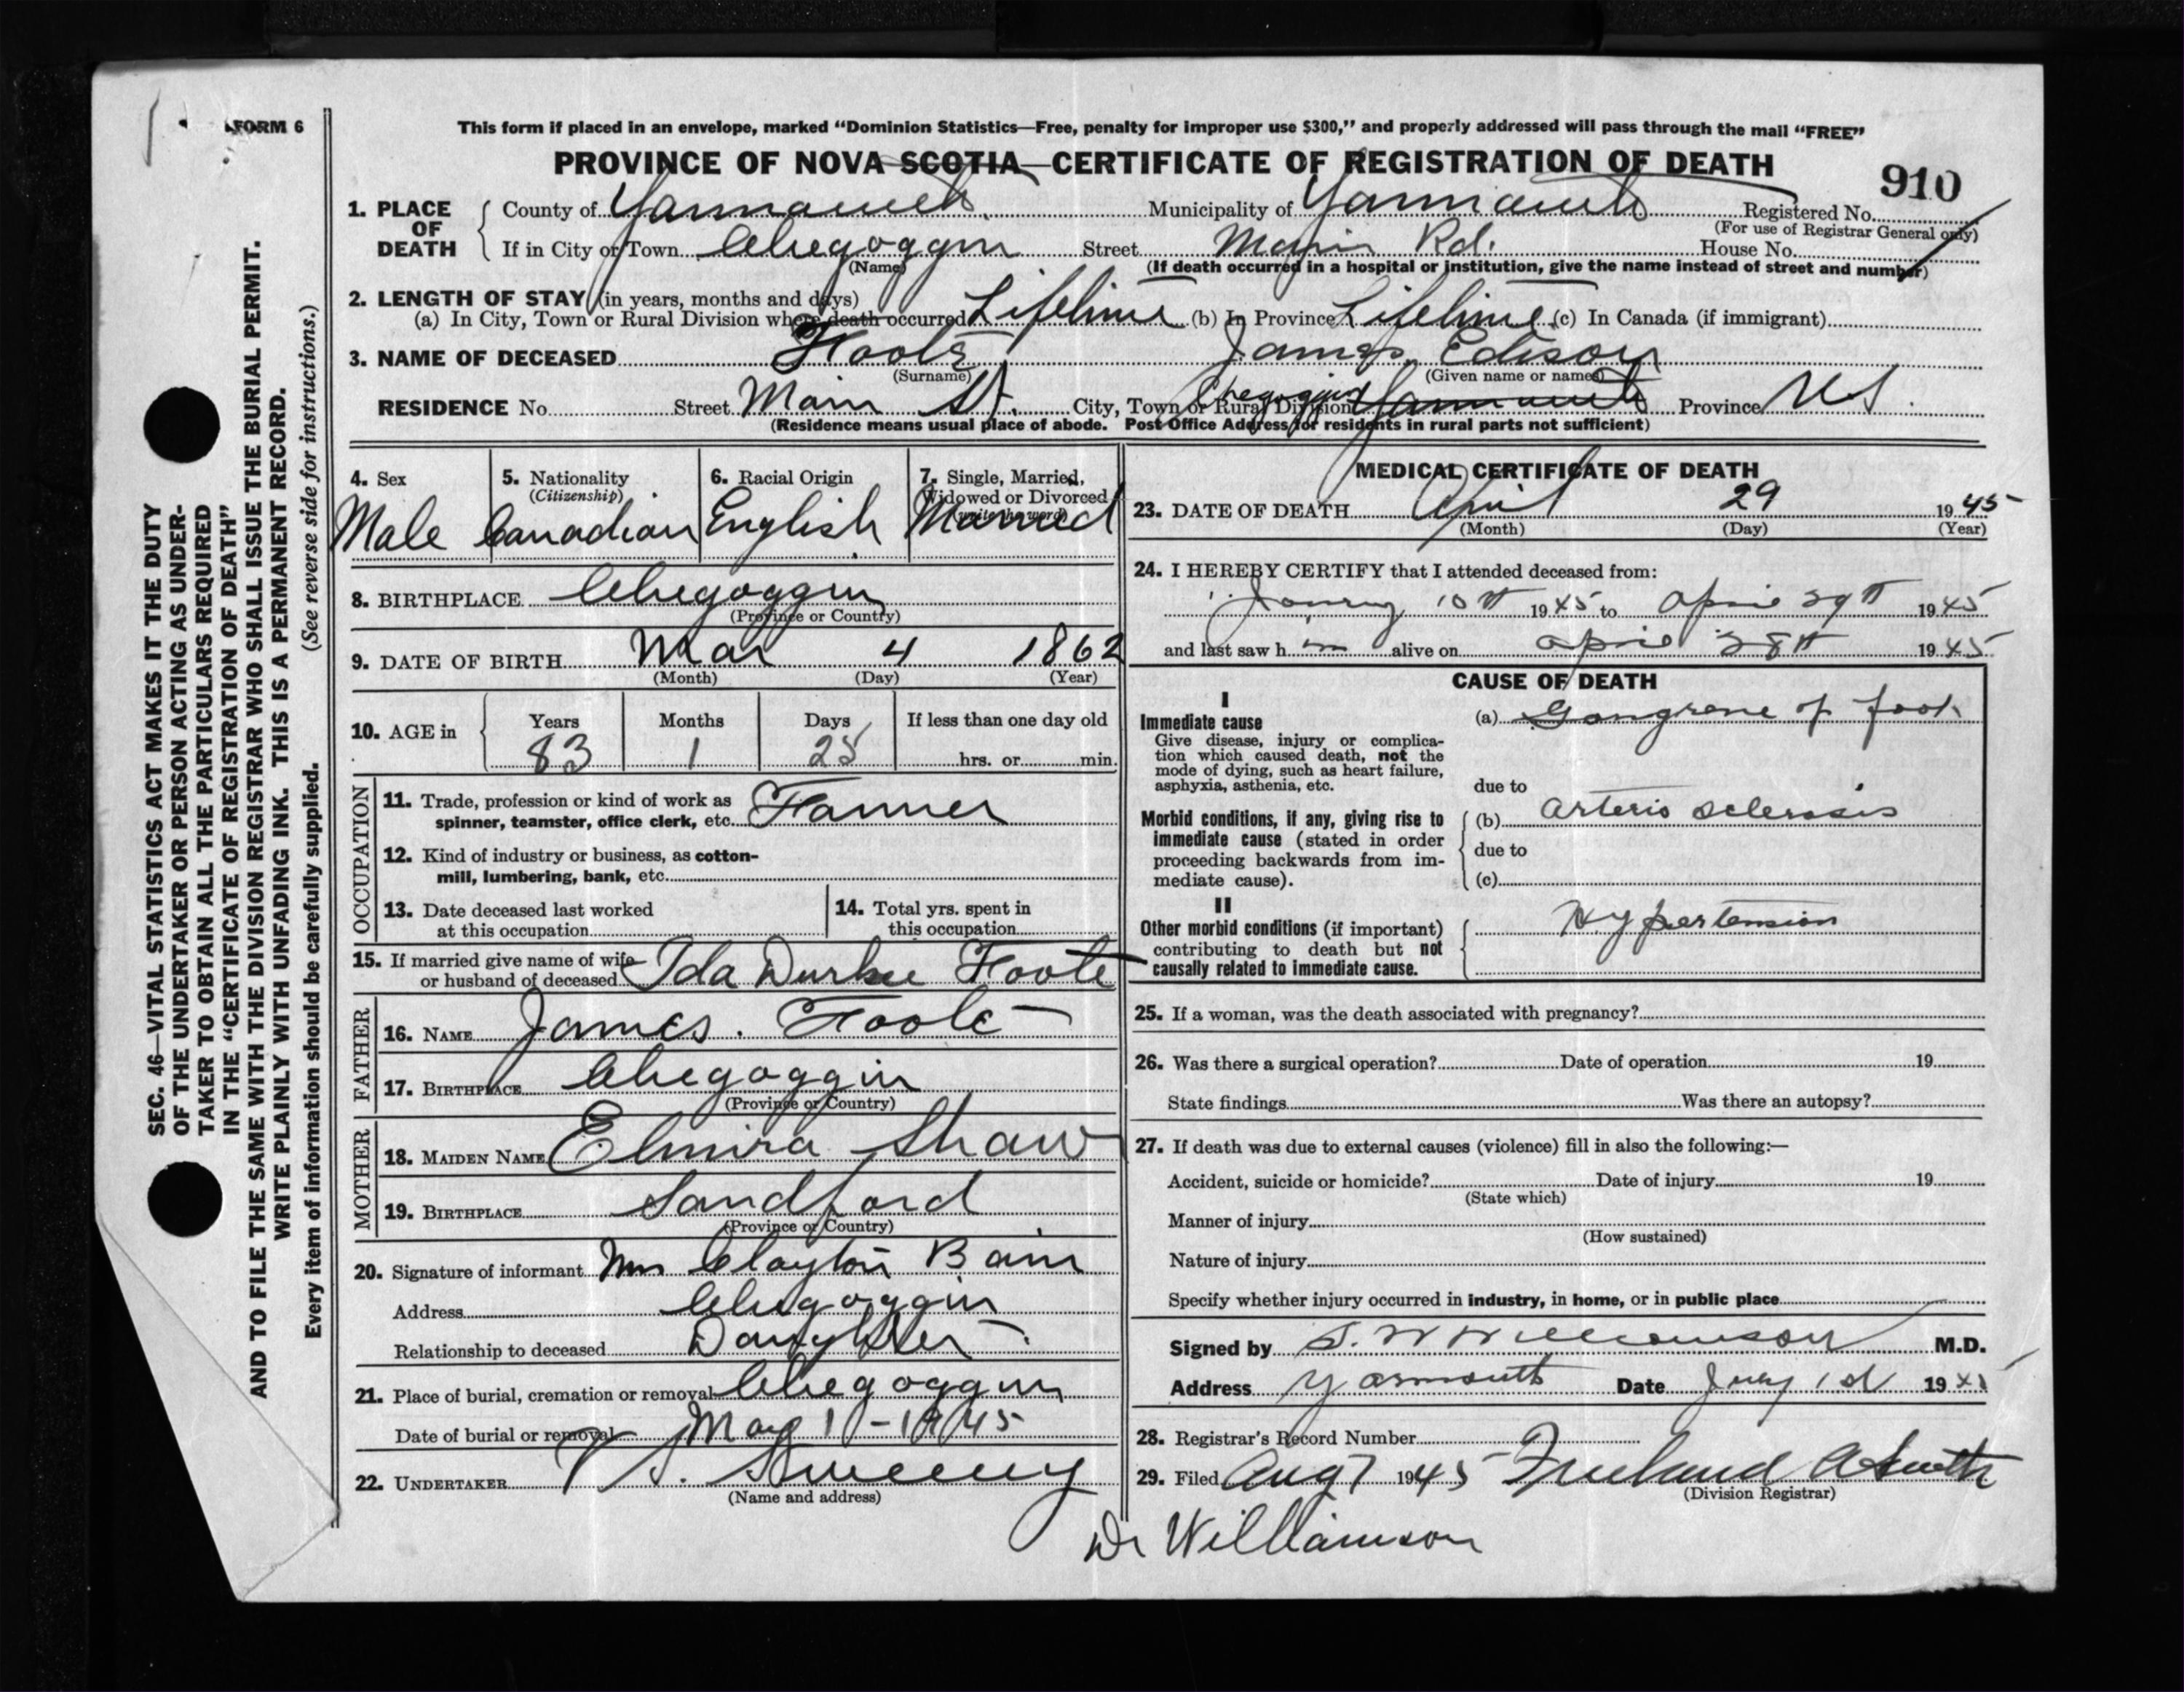 FORM 6
This form if placed in an envelope, marked “Dominion Statistics—Free, penalty for improper use $300,” and properly addressed will pass through the mail “FREE”
PROVINCE OF NOVA SCOTIA—CERTIFICATE OF REGISTRATION OF DEATH
910
1. PLACE OF DEATH
County of Yarmouth Municipality of Yarmouth Registered No.
(For use of Registrar General only)
If in City or Town Chegoggin Street Main Rd. House No.
(Name) (If death occurred in a hospital or institution, give the name instead of street and number)
2. LENGTH OF STAY (in years, months and days)
(a) In City, Town or Rural Division where death occurred Lifetime (b) In Province Lifetime (c) In Canada (if immigrant)
3. NAME OF DECEASED Foote James Edison
(Surname) (Given name or names)
RESIDENCE No. Street Main St. City, Town or Rural Division Chegoggin Yarmouth Province N.S.
(Residence means usual place of abode. Post Office Address for residents in rural parts not sufficient)
4. Sex
Male
5. Nationality
(Citizenship)
Canadian
6. Racial Origin
English
7. Single, Married,
Widowed or Divorced
(write the word)
Married
8. BIRTHPLACE Chegoggin
(Province or Country)
9. DATE OF BIRTH Mar 4 1862
(Month) (Day) (Year)
10. AGE in Years Months Days If less than one day old
83 1 25 hrs. or min.
OCCUPATION
11. Trade, profession or kind of work as
spinner, teamster, office clerk, etc. Farmer
12. Kind of industry or business, as cotton-
mill, lumbering, bank, etc.
13. Date deceased last worked
at this occupation
14. Total yrs. spent in
this occupation
15. If married give name of wife
or husband of deceased Ida Durkee Foote
FATHER
16. NAME James. Foote
17. BIRTHPLACE Chegoggin
(Province or Country)
MOTHER
18. MAIDEN NAME Elmira Shaw
19. BIRTHPLACE Sandford
(Province or Country)
20. Signature of informant Mrs Clayton Bain
Address Chegoggin
Relationship to deceased Daughter
21. Place of burial, cremation or removal Chegoggin
Date of burial or removal May 1-1945
22. UNDERTAKER V S. Sweeny
(Name and address)
MEDICAL CERTIFICATE OF DEATH
23. DATE OF DEATH April 29 1945
(Month) (Day) (Year)
24. I HEREBY CERTIFY that I attended deceased from:
10th 1945 to April 29th 1945
and last saw him alive on April 28th 1945
CAUSE OF DEATH
I
Immediate cause
Give disease, injury or complica-
tion which caused death, not the
mode of dying, such as heart failure,
asphyxia, asthenia, etc.
(a) Gangrene of foot
due to
Morbid conditions, if any, giving rise to
immediate cause (stated in order
proceeding backwards from im-
mediate cause).
(b) arterio sclerosis
due to
(c)
II
Other morbid conditions (if important)
contributing to death but not
causally related to immediate cause.
Hypertension
25. If a woman, was the death associated with pregnancy?
26. Was there a surgical operation? Date of operation 19
State findings Was there an autopsy?
27. If death was due to external causes (violence) fill in also the following:—
Accident, suicide or homicide? Date of injury 19
(State which)
Manner of injury
(How sustained)
Nature of injury
Specify whether injury occurred in industry, in home, or in public place
Signed by S. W Williamson M.D.
Address Yarmouth Date 1st 1945
28. Registrar's Record Number
29. Filed Aug 7 1945 Freeland A Smith
(Division Registrar)
Dr Williamson
SEC. 46—VITAL STATISTICS ACT MAKES IT THE DUTY
OF THE UNDERTAKER OR PERSON ACTING AS UNDER-
TAKER TO OBTAIN ALL THE PARTICULARS REQUIRED
IN THE “CERTIFICATE OF REGISTRATION OF DEATH”
AND TO FILE THE SAME WITH THE DIVISION REGISTRAR WHO SHALL ISSUE THE BURIAL PERMIT.
WRITE PLAINLY WITH UNFADING INK. THIS IS A PERMANENT RECORD.
Every item of information should be carefully supplied. (See reverse side for instructions.)